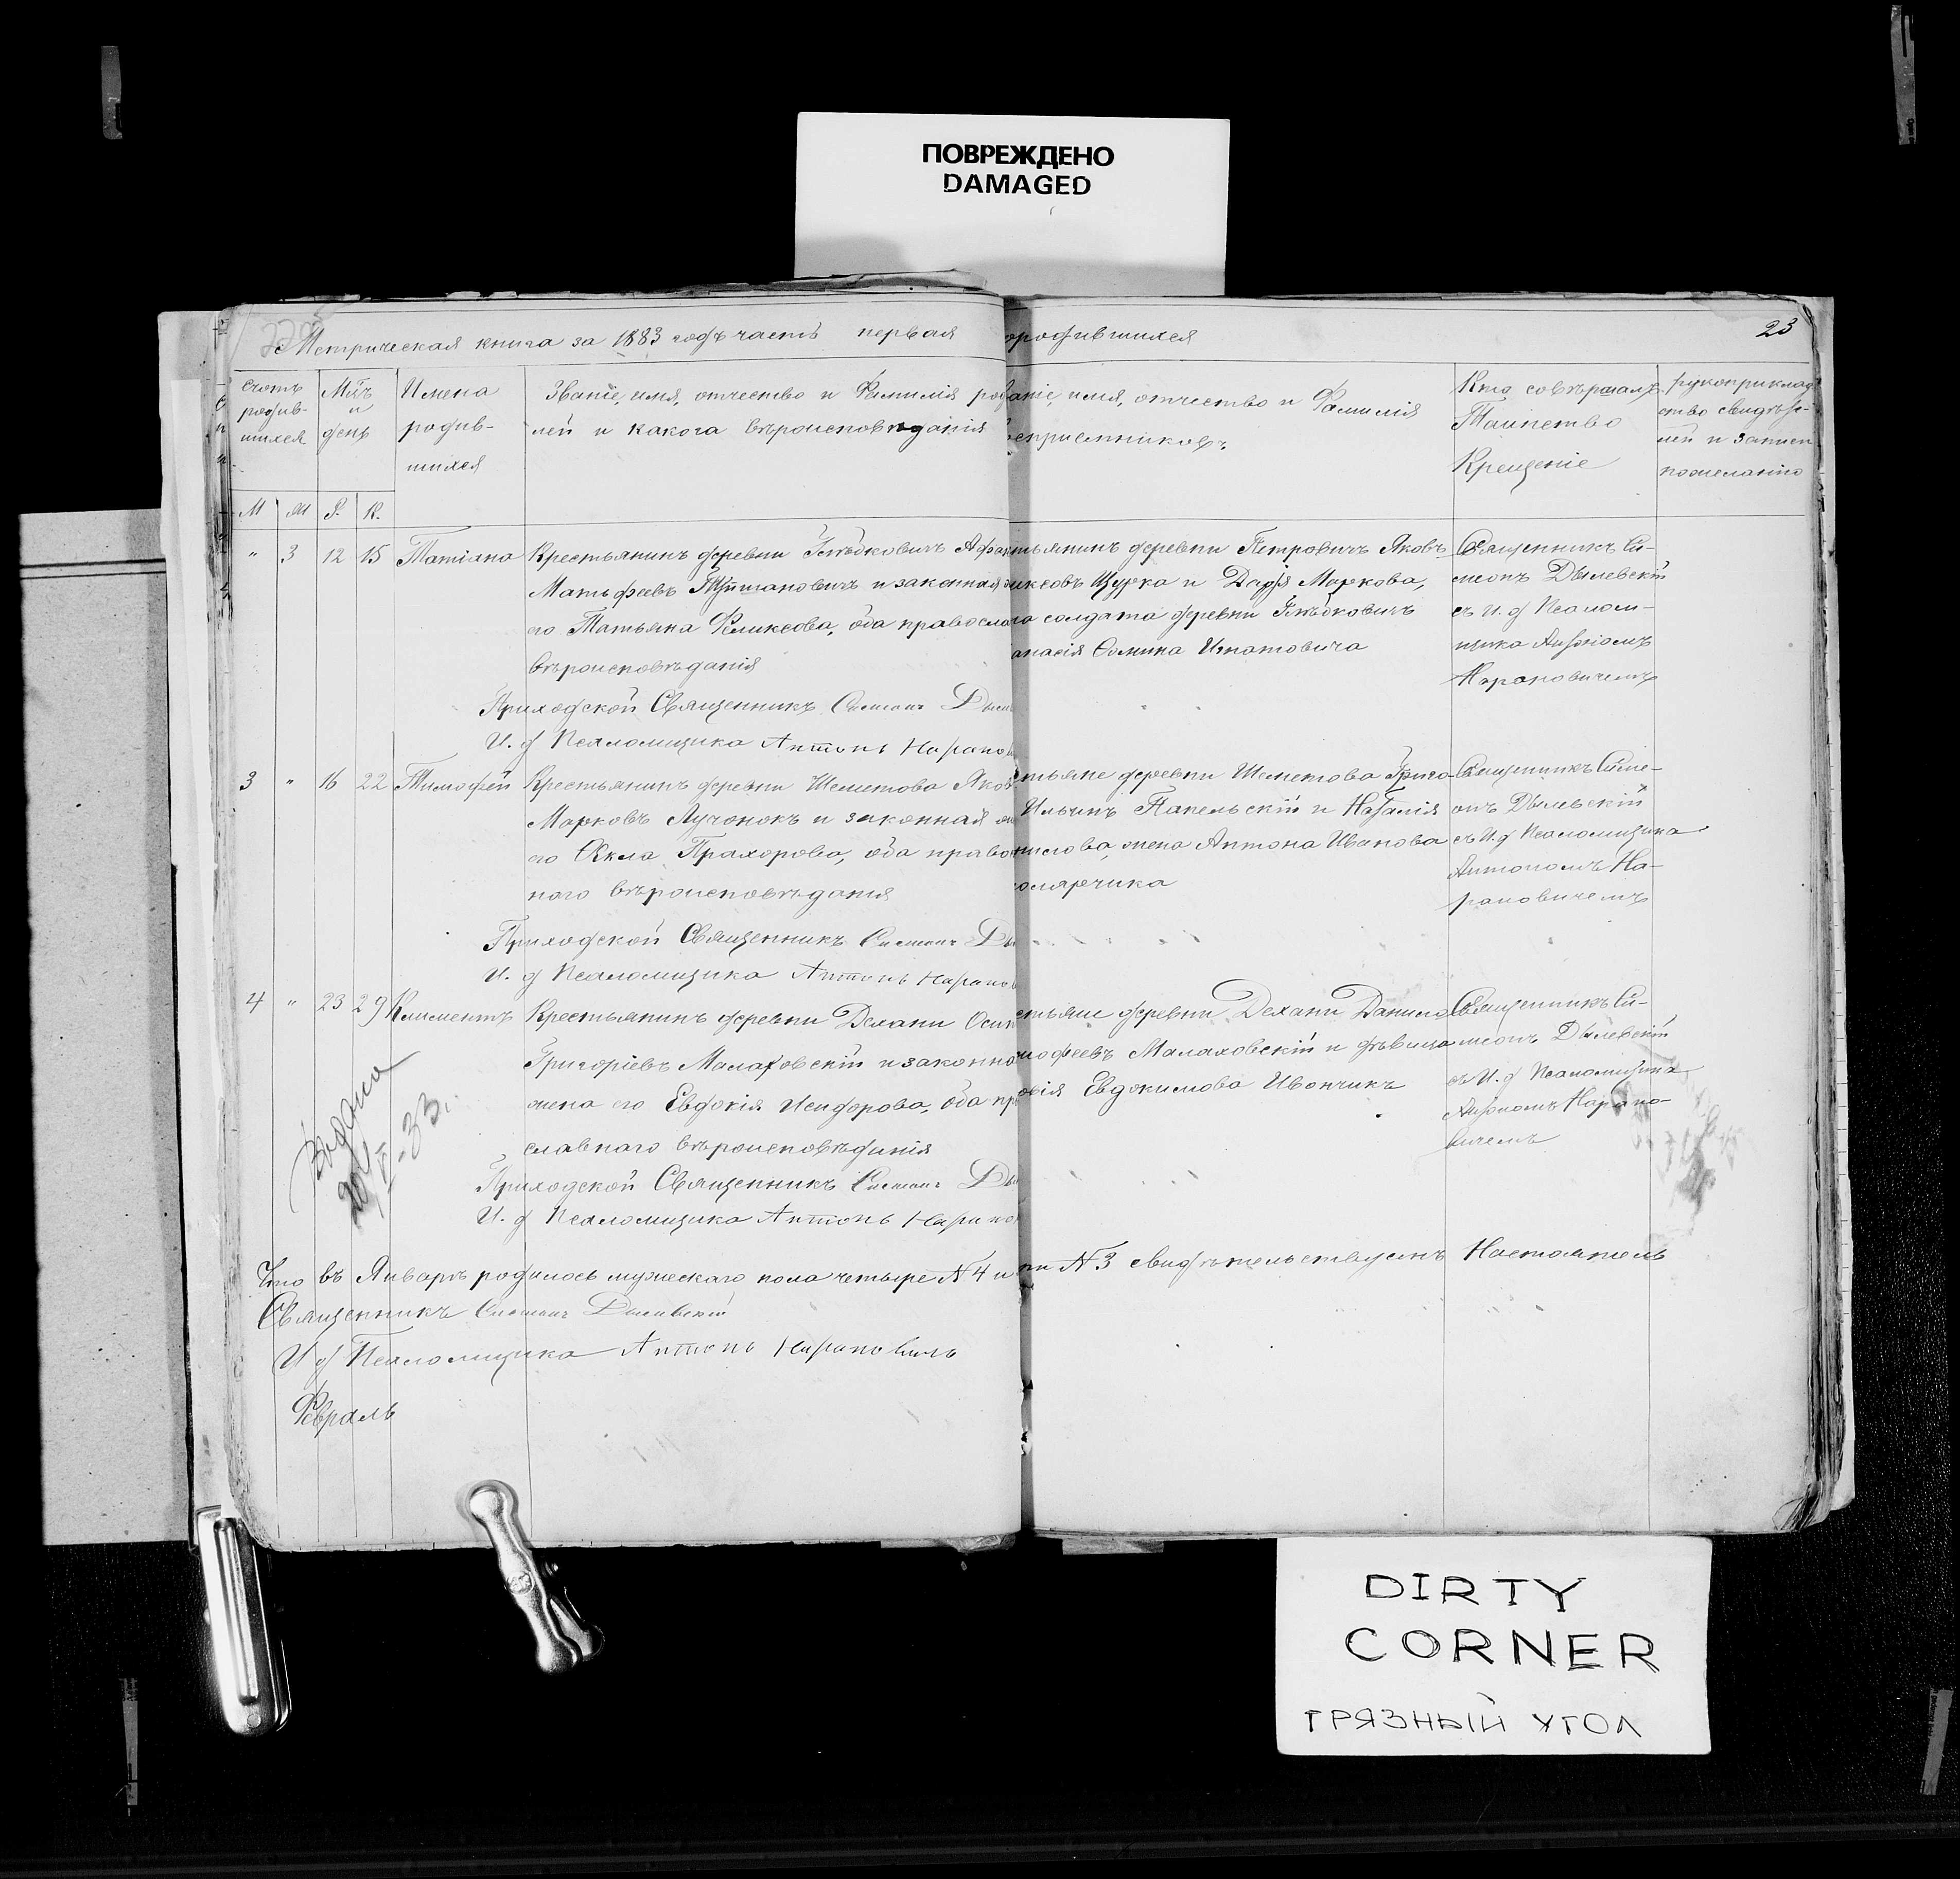 ПОВРЕЖДЕНО
DAMAGED
Метрическая книга за 1883 годъ часть первая
ородившихся
23
Счотъ родив- шихся
Мцъ и день
Имена родив- шихся
Званіе, имя, отчество и Фамилія род
лей и какога вѣроисповѣданія
аніе, имя, отчество и Фамилія
осприемниковъ.
Кто совѣршалъ
Таинство
Крещеніе
рукоприклад
ство свидѣте-
лей и записи
пожеланію
М М Р. К.
" 3 12 15 Татіана
Крестьянинъ деревни Гнѣдковичъ Афан
Матьфеевъ и законная
его Татьяна Феликсова, оба правосла
вѣроисповѣданія
Приходской Священникъ Симеонъ Дыл
И. д Псаломщика Антонъ Наранов
тьянинъ деревни Петровичъ Яковъ
иксовъ Щурка и Дарія Маркова,
а солдата деревни Гнѣдковичъ
анасія Фомина Игнатовича
Священникъ Си-
меонъ Дылевскій
съ И. д Псалом-
щика Антономъ
Нарановичемъ
3 " 16 22 Тимофей
Крестьянинъ деревни Шеметова Яков
Марковъ Лучонокъ и законная ж
его Фекла Прахорова, оба право
наго вѣроисповѣданія
Приходской Священникъ Симеонъ Ды
И. д Псаломщика Антонъ Наранов
тьяне деревни Шеметова Григо-
Ильинъ Папельскій и Наталія
милова, жена Антона Иванова
олярчика
Священникъ Симе-
онъ Дылевскій
съ И. д Псаломщика
Антономъ На-
рановичемъ
4 " 23 29 Климентъ
Крестьянинъ деревни Дехани Осип
Григоріевъ Малаховскій и законно
жена его Евдокія Исидорова, оба пр
славнаго вѣроисповѣданія
Приходской Священникъ Симеонъ Ды
И. д Псаломщика Антонъ Наранов
стьяне деревни Дехани Данило
мофеевъ Малаховскій и дѣвица
овія Евдокимова Ивончикъ
Священникъ Си-
меонъ Дылевскій
съ И. д Псаломщика
Антономъ Нарано-
вичемъ
Видана
20/V-33.
Что въ Январѣ родилось мужескаго пола четыре N 4 и
ти N 3 свидѣтельствуемъ Настоятель
Священникъ Симеонъ Дылевскій
И д Псаломщика Антонъ Нарановичъ
Февраль
DIRTY
CORNER
ГРЯЗНЫЙ УГОЛ